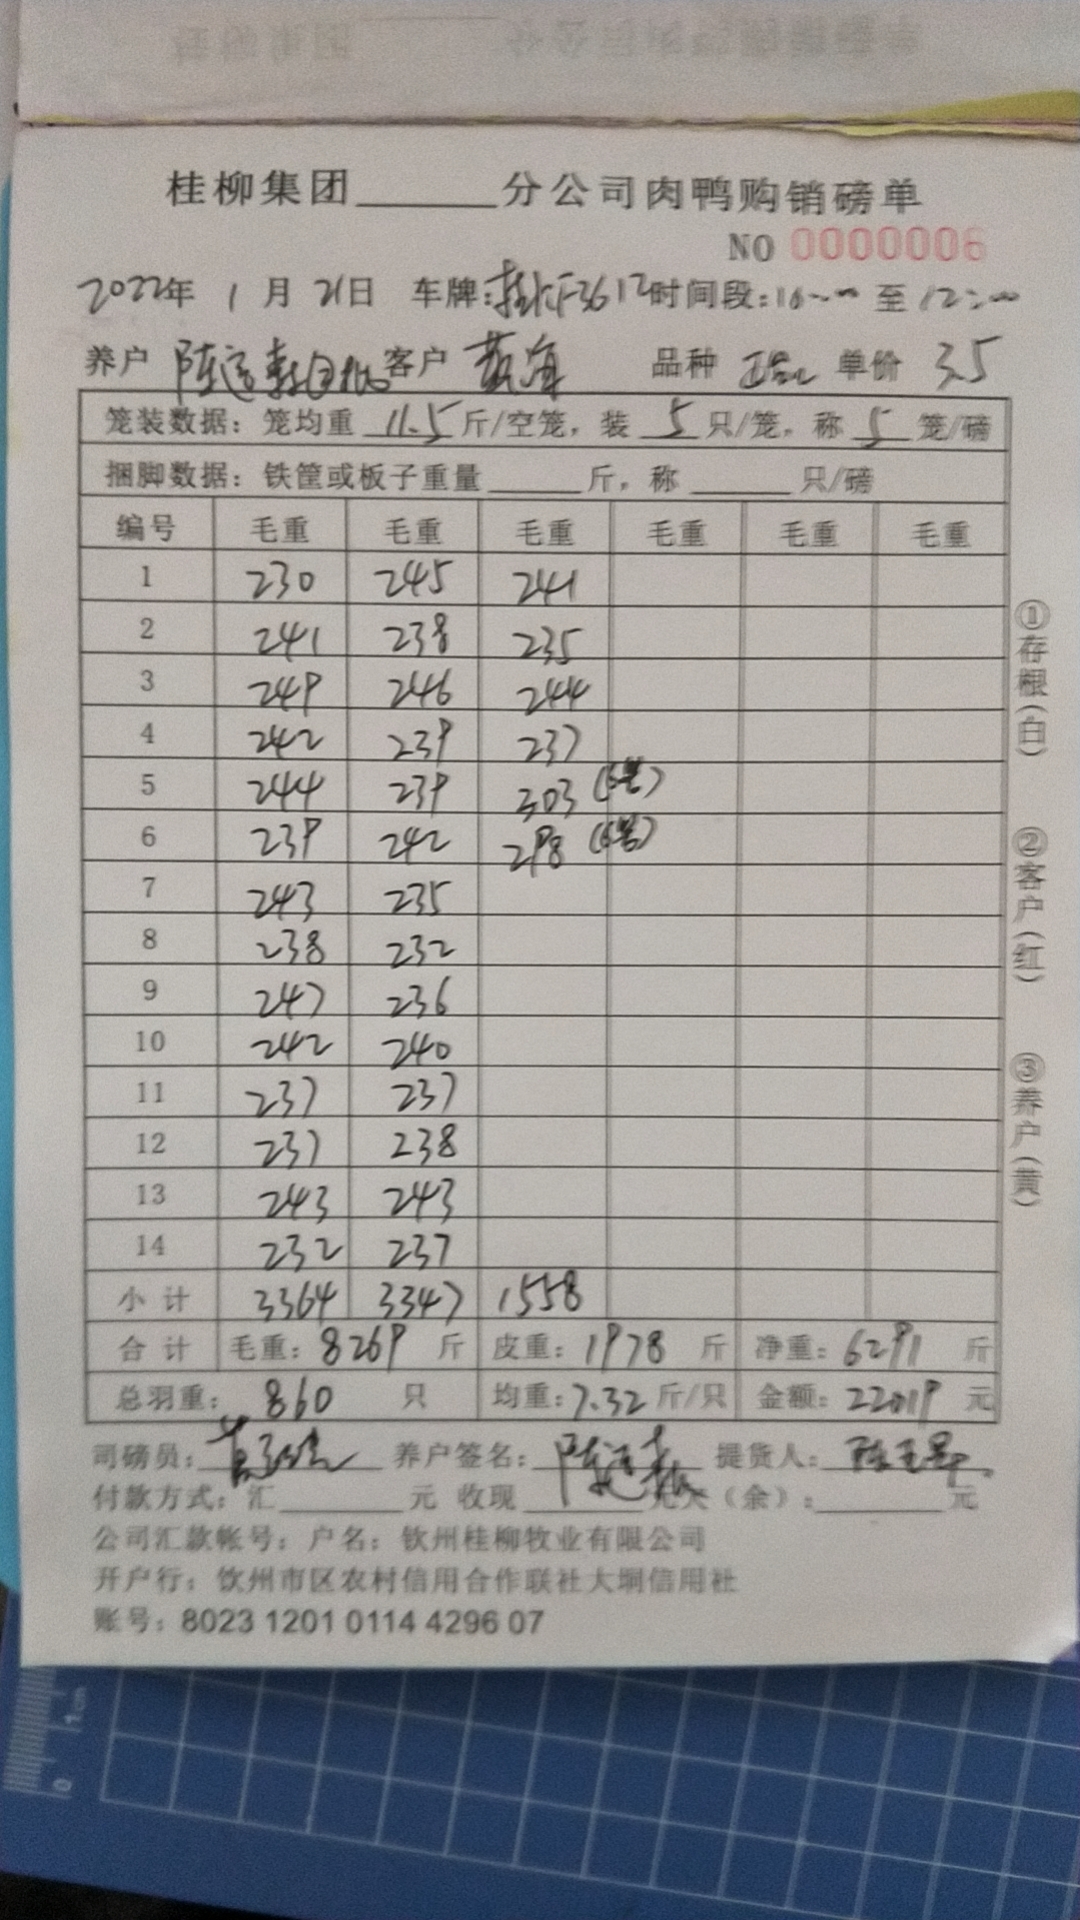 桂柳集团______分公司肉鸭购销磅单
NO 0000006
2022年 1月 21日 车牌: F3612 时间段: 至 12:00
养户 客户 品种 单价 3.5
笼装数据: 笼均重 11.5 斤/空笼, 装 5 只/笼, 称 5 笼/磅
捆脚数据: 铁筐或板子重量______斤, 称______只/磅
编号 毛重 毛重 毛重 毛重 毛重 毛重
1 230 245 241
2 241 238 235
3 249 246 244
4 242 239 237
5 244 239 303 (6笼)
6 239 242 298 (6笼)
7 243 235
8 238 232
9 247 236
10 242 240
11 237 237
12 237 238
13 243 243
14 232 237
小计 3364 3347 1558
合计 毛重: 8269 斤 皮重: 1978 斤 净重: 6291 斤
总羽重: 860 只 均重: 7.32 斤/只 金额: 22019 元
司磅员: 养户签名: 提货人:
付款方式: 汇______元 收现______元欠(余):______元
公司汇款帐号: 户名: 钦州桂柳牧业有限公司
开户行: 钦州市区农村信用合作联社大垌信用社
账号: 8023 1201 0114 4296 07
①存根(白)
②客户(红)
③养户(黄)